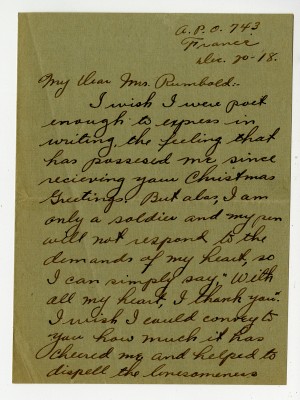 A.P.O. 743
France
Dec. 20-18.
My Dear Mrs. Rumbold:-
I wish I were poet
enough to express in
writing the feeling that
has possesed me since
recieving your Christmas
Greetings. But alas, I am
only a soldier and my pen
will not respond to the
demands of my heart, so
I can simply say, "With
all my heart, I thank you".
I wish I could convey to
you how much it has
cheered me, and helped to
dispell the lonesomeness